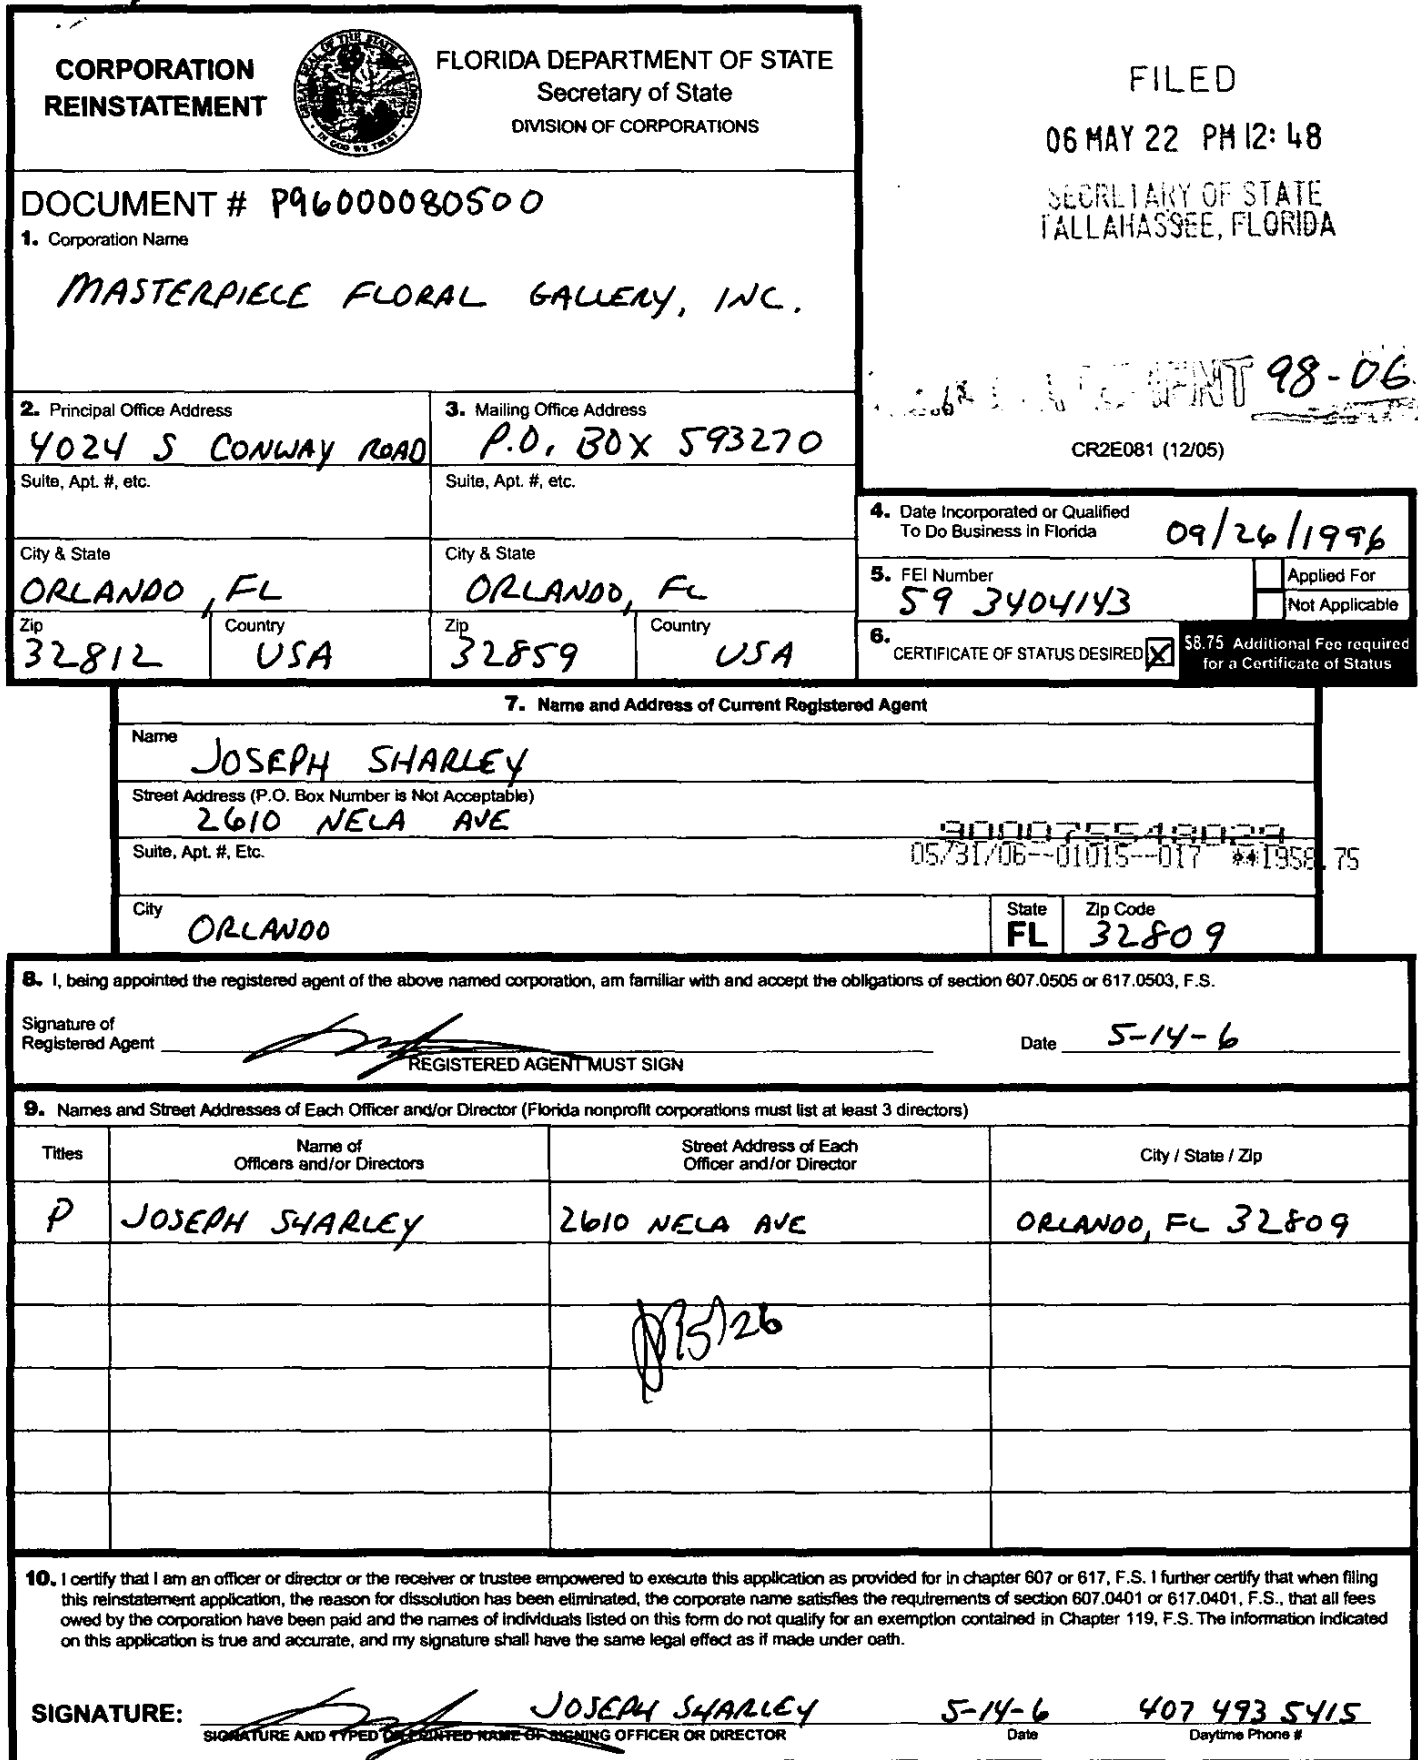 CORPORATION
REINSTATEMENT
GREAT SEAL OF THE STATE OF FLORIDA
IN GOD WE TRUST
FLORIDA DEPARTMENT OF STATE
Secretary of State
DIVISION OF CORPORATIONS
FILED
06 MAY 22 PM 12:48
SECRETARY OF STATE
TALLAHASSEE, FLORIDA
DOCUMENT # P96000080500
1. Corporation Name
MASTERPIECE FLORAL GALLERY, INC.
98-06
CR2E081 (12/05)
2. Principal Office Address
4024 S CONWAY ROAD
Suite, Apt. #, etc.
City & State
ORLANDO, FL
Zip
32812
Country
USA
3. Mailing Office Address
P.O. BOX 593270
Suite, Apt. #, etc.
City & State
ORLANDO, FL
Zip
32859
Country
USA
4. Date Incorporated or Qualified
To Do Business in Florida
09/26/1996
5. FEI Number
59 3404143
Applied For
Not Applicable
6. CERTIFICATE OF STATUS DESIRED X
$8.75 Additional Fee required
for a Certificate of Status
7. Name and Address of Current Registered Agent
Name
JOSEPH SHARLEY
Street Address (P.O. Box Number is Not Acceptable)
2610 NELA AVE
900075548029
Suite, Apt. #, Etc.
05/31/06--01015--017 **1958.75
City
ORLANDO
State
FL
Zip Code
32809
8. I, being appointed the registered agent of the above named corporation, am familiar with and accept the obligations of section 607.0505 or 617.0503, F.S.
Signature of
Registered Agent
REGISTERED AGENT MUST SIGN
Date 5-14-6
9. Names and Street Addresses of Each Officer and/or Director (Florida nonprofit corporations must list at least 3 directors)
Titles
Name of
Officers and/or Directors
Street Address of Each
Officer and/or Director
City / State / Zip
P JOSEPH SHARLEY 2610 NELA AVE ORLANDO, FL 32809
5/26
10. I certify that I am an officer or director or the receiver or trustee empowered to execute this application as provided for in chapter 607 or 617, F.S. I further certify that when filing
this reinstatement application, the reason for dissolution has been eliminated, the corporate name satisfies the requirements of section 607.0401 or 617.0401, F.S., that all fees
owed by the corporation have been paid and the names of individuals listed on this form do not qualify for an exemption contained in Chapter 119, F.S. The information indicated
on this application is true and accurate, and my signature shall have the same legal effect as if made under oath.
SIGNATURE: JOSEPH SHARLEY 5-14-6 407 493 5415
SIGNATURE AND TYPED OR PRINTED NAME OF SIGNING OFFICER OR DIRECTOR Date Daytime Phone #